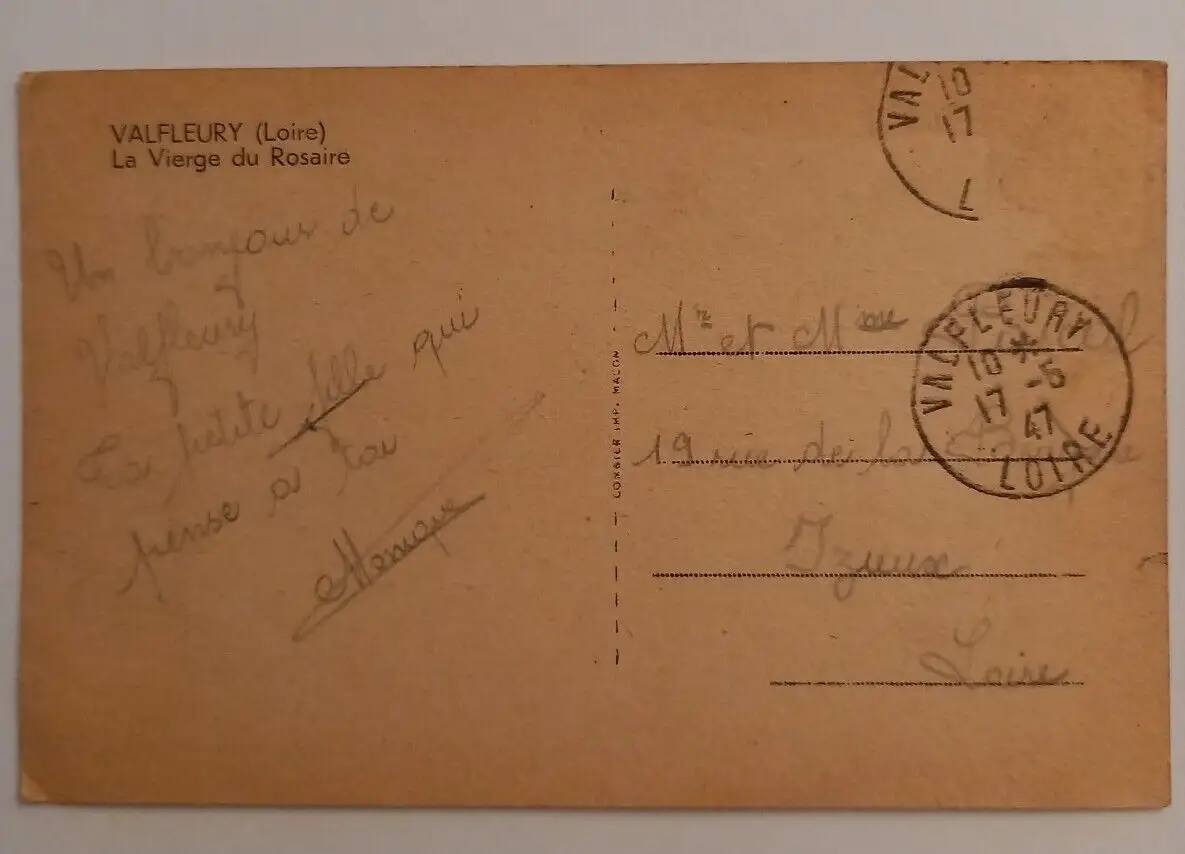 VALFLEURY (Loire)
La Vierge du Rosaire
Un bonjour de
Valfleury
Ta petite fille qui
pense a toi
COMBIER IMP. MACON
VAL
10
17
L
VALFLEURY
10 * -5
17 47
LOIRE
Mr et Mme
19 rue de la
Izieux
Loire